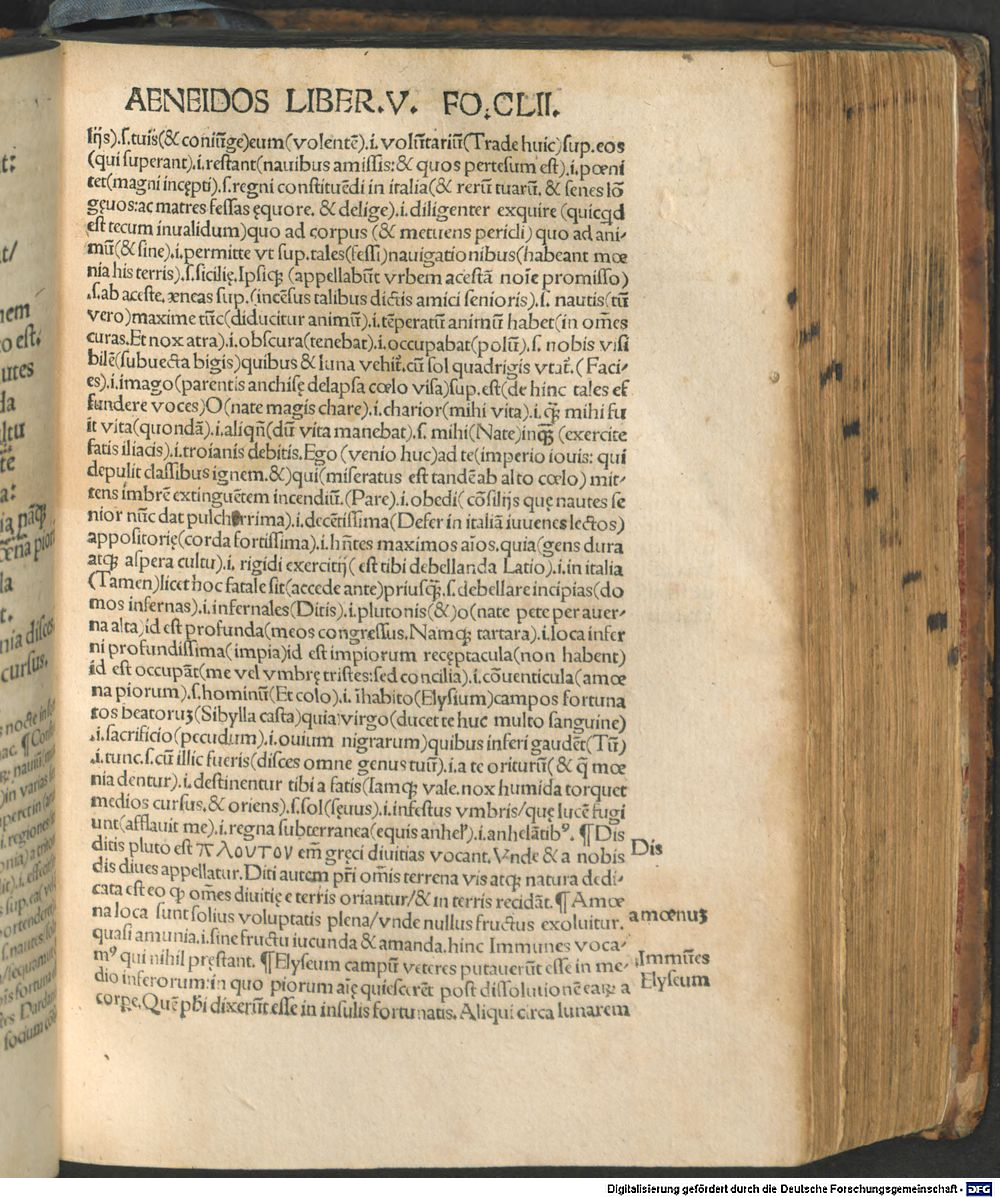 AENEIDOS LIBER.V. FO.CLII.
lijs).s.tuis(& coniūge)eum(volentē).i. volūtariū(Trade huic)sup.eos
(qui superant).i.restant(nauibus amissis:& quos pertesum est).i.pœni
tet(magni incępti).s.regni constituēdi in italia(& rerū tuarū. & senes lō
gęuos:ac matres fessas ęquore. & delige).i.diligenter exquire (quicqd
est tecum inualidum)quo ad corpus (& metuens pericli) quo ad ani-
mū(& sine).i.permitte vt sup.tales(fessi)nauigationibus(habeant mœ
nia his terris).s.sicilię.Ipsiqꝫ (appellabūt vrbem acestā noīe promisso)
.s.ab aceste.æneas sup.(incēsus talibus dictis amici senioris).s. nautis(tū
vero)maxime tūc(diducitur animū).i.tēperatū animū habet(in om̄es
curas.Et nox atra).i.obscura(tenebat).i.occupabat(polū).s. nobis visi
bilē(subuecta bigis)quibus & luna vehit̃.cū sol quadrigis vtat̃.(Faci-
es).i.imago(parentis anchisę delapsa cœlo visa)sup.est(de hinc tales ef
fundere voces)O(nate magis chare).i.charior(mihi vita).i.qꝫ̄ mihi fu
it vita(quondā).i.aliqñ(dū vita manebat).s. mihi(Nate)inqꝫ̄ (exercite
fatis iliacis).i.troianis debitis.Ego (venio huc)ad te(imperio iouis: qui
depulit classibus ignem.&)qui(miseratus est tandē ab alto cœlo) mit-
tens imbrē extinguētem incendiū.(Pare).i.obedi( cōsilijs quę nautes se
nior nūc dat pulcherrima).i.decētissima(Defer in italiā iuuenes lectos)
appositorię(corda fortissima).i.hñtes maximos aīos.quia(gens dura
atqꝫ aspera cultu).i. rigidi exercitij( est tibi debellanda Latio).i.in italia
(Tamen)licet hoc fatale sit(accede ante)priusqꝫ̄.s. debellare incipias(do
mos infernas).i.infernales(Ditis).i.plutonis(&)o(nate pete per auer-
na alta)id est profunda(meos congressus.Namqꝫ tartara).i.loca infer
ni profundissima(impia)id est impiorum recęptacula(non habent)
id est occupāt(me vel vmbrę tristes:sed concilia).i.cōuenticula(amœ
na piorum).s.hominū(Et colo).i. īhabito(Elysium)campos fortuna
tos beatoruꝫ(Sibylla casta)quia virgo(ducet te huc multo sanguine)
.i.sacrificio(pecudum).i.ouium nigrarum)quibus inferi gaudēt(Tū)
.i.tunc.s.cū illic fueris(disces omne genus tuū).i.a te oriturū( & q̄ mœ
nia dentur).i.destinentur tibi a fatis(Iamqꝫ vale.nox humida torquet
medios cursus.& oriens).s.sol(sęuus).i.infestus vmbris/quę lucē fugi
unt(afflauit me).i.regna subterranea(equis anhel̃).i.anhelātibꝰ. ¶Dis
ditis pluto est πλουτου em̄ gręci diuitias vocant.Vnde & a nobis
dis diues appellatur.Diti autem pr̄i om̄is terrena vis atqꝫ natura dedi-
cata est eo ꝙ om̄es diuitię e terris oriantur/& in terris recidāt.¶Amœ
na loca sunt solius voluptatis plena/vnde nullus fructus exoluitur.
quasi amunia.i.sine fructu iucunda & amanda.hinc Immunes voca-
mꝰ qui nihil pręstant. ¶Elyseum campū veteres putauerūt esse in me-
dio inferorum:in quo piorum aīę quiescerēt post dissolutionē eaꝝ a
corꝑe.Quē ph̄i dixerūt esse in insulis fortunatis. Aliqui circa lunarem
Dis
amœnuꝫ
Immūes
Elyseum
Digitalisierung gefördert durch die Deutsche Forschungsgemeinschaft - DFG